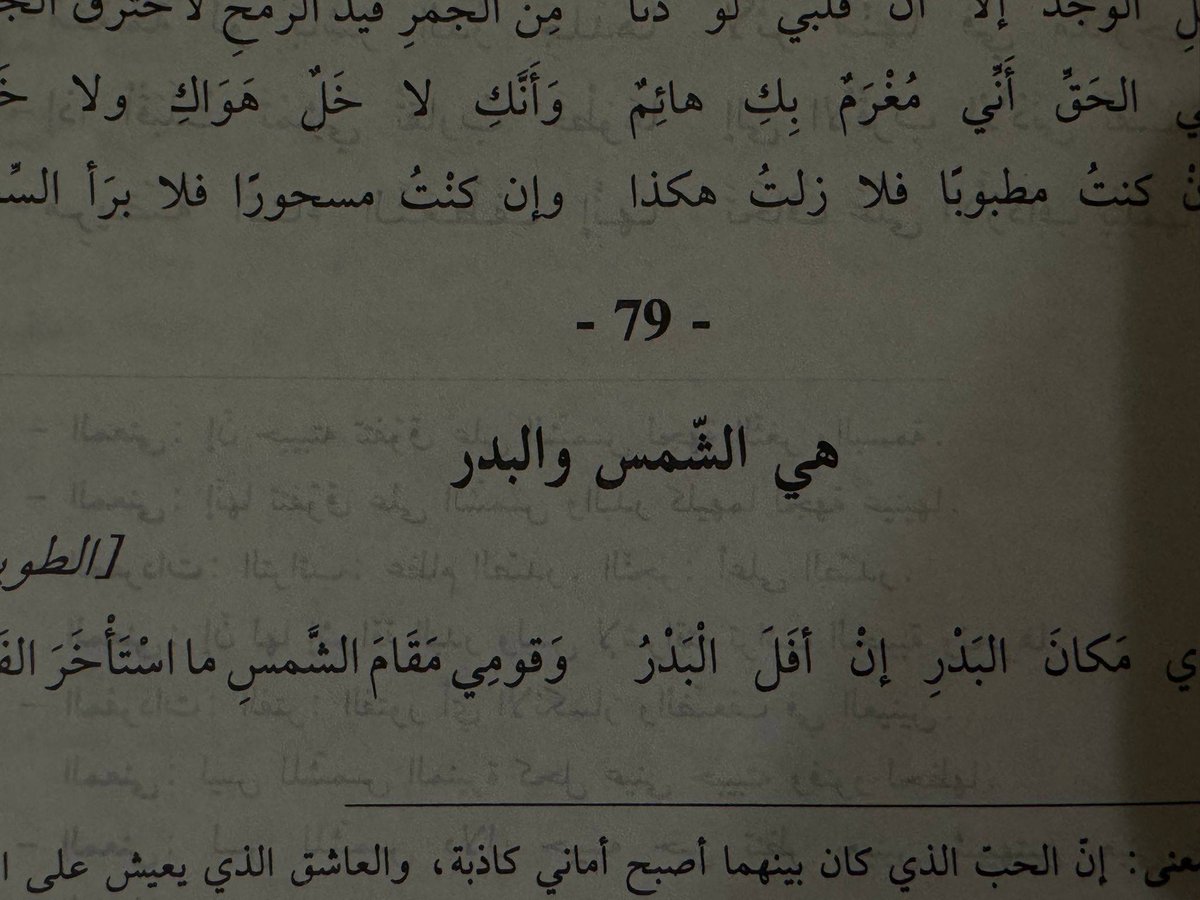 الوجد إلا أن قلبي لو دنا من الجمرِ قيدَ الرمحِ لاحترق
الحَقِّ أَنِّي مُغْرَمٌ بِكِ هائِمٌ وَأَنَّكِ لا خَلٌّ هَوَاكِ ولا
كنتُ مطبوبًا فلا زلتُ هكذا وإن كنْتُ مسحورًا فلا برَأ
- 79 -
هي الشّمس والبدر
مَكانَ البَدْرِ إنْ أفَلَ الْبَدْرُ وَقومِي مَقَامَ الشَّمسِ ما اسْتَأْخَرَ
إنّ الحبّ الذي كان بينهما أصبح أماني كاذبة، والعاشق الذي يعيش على